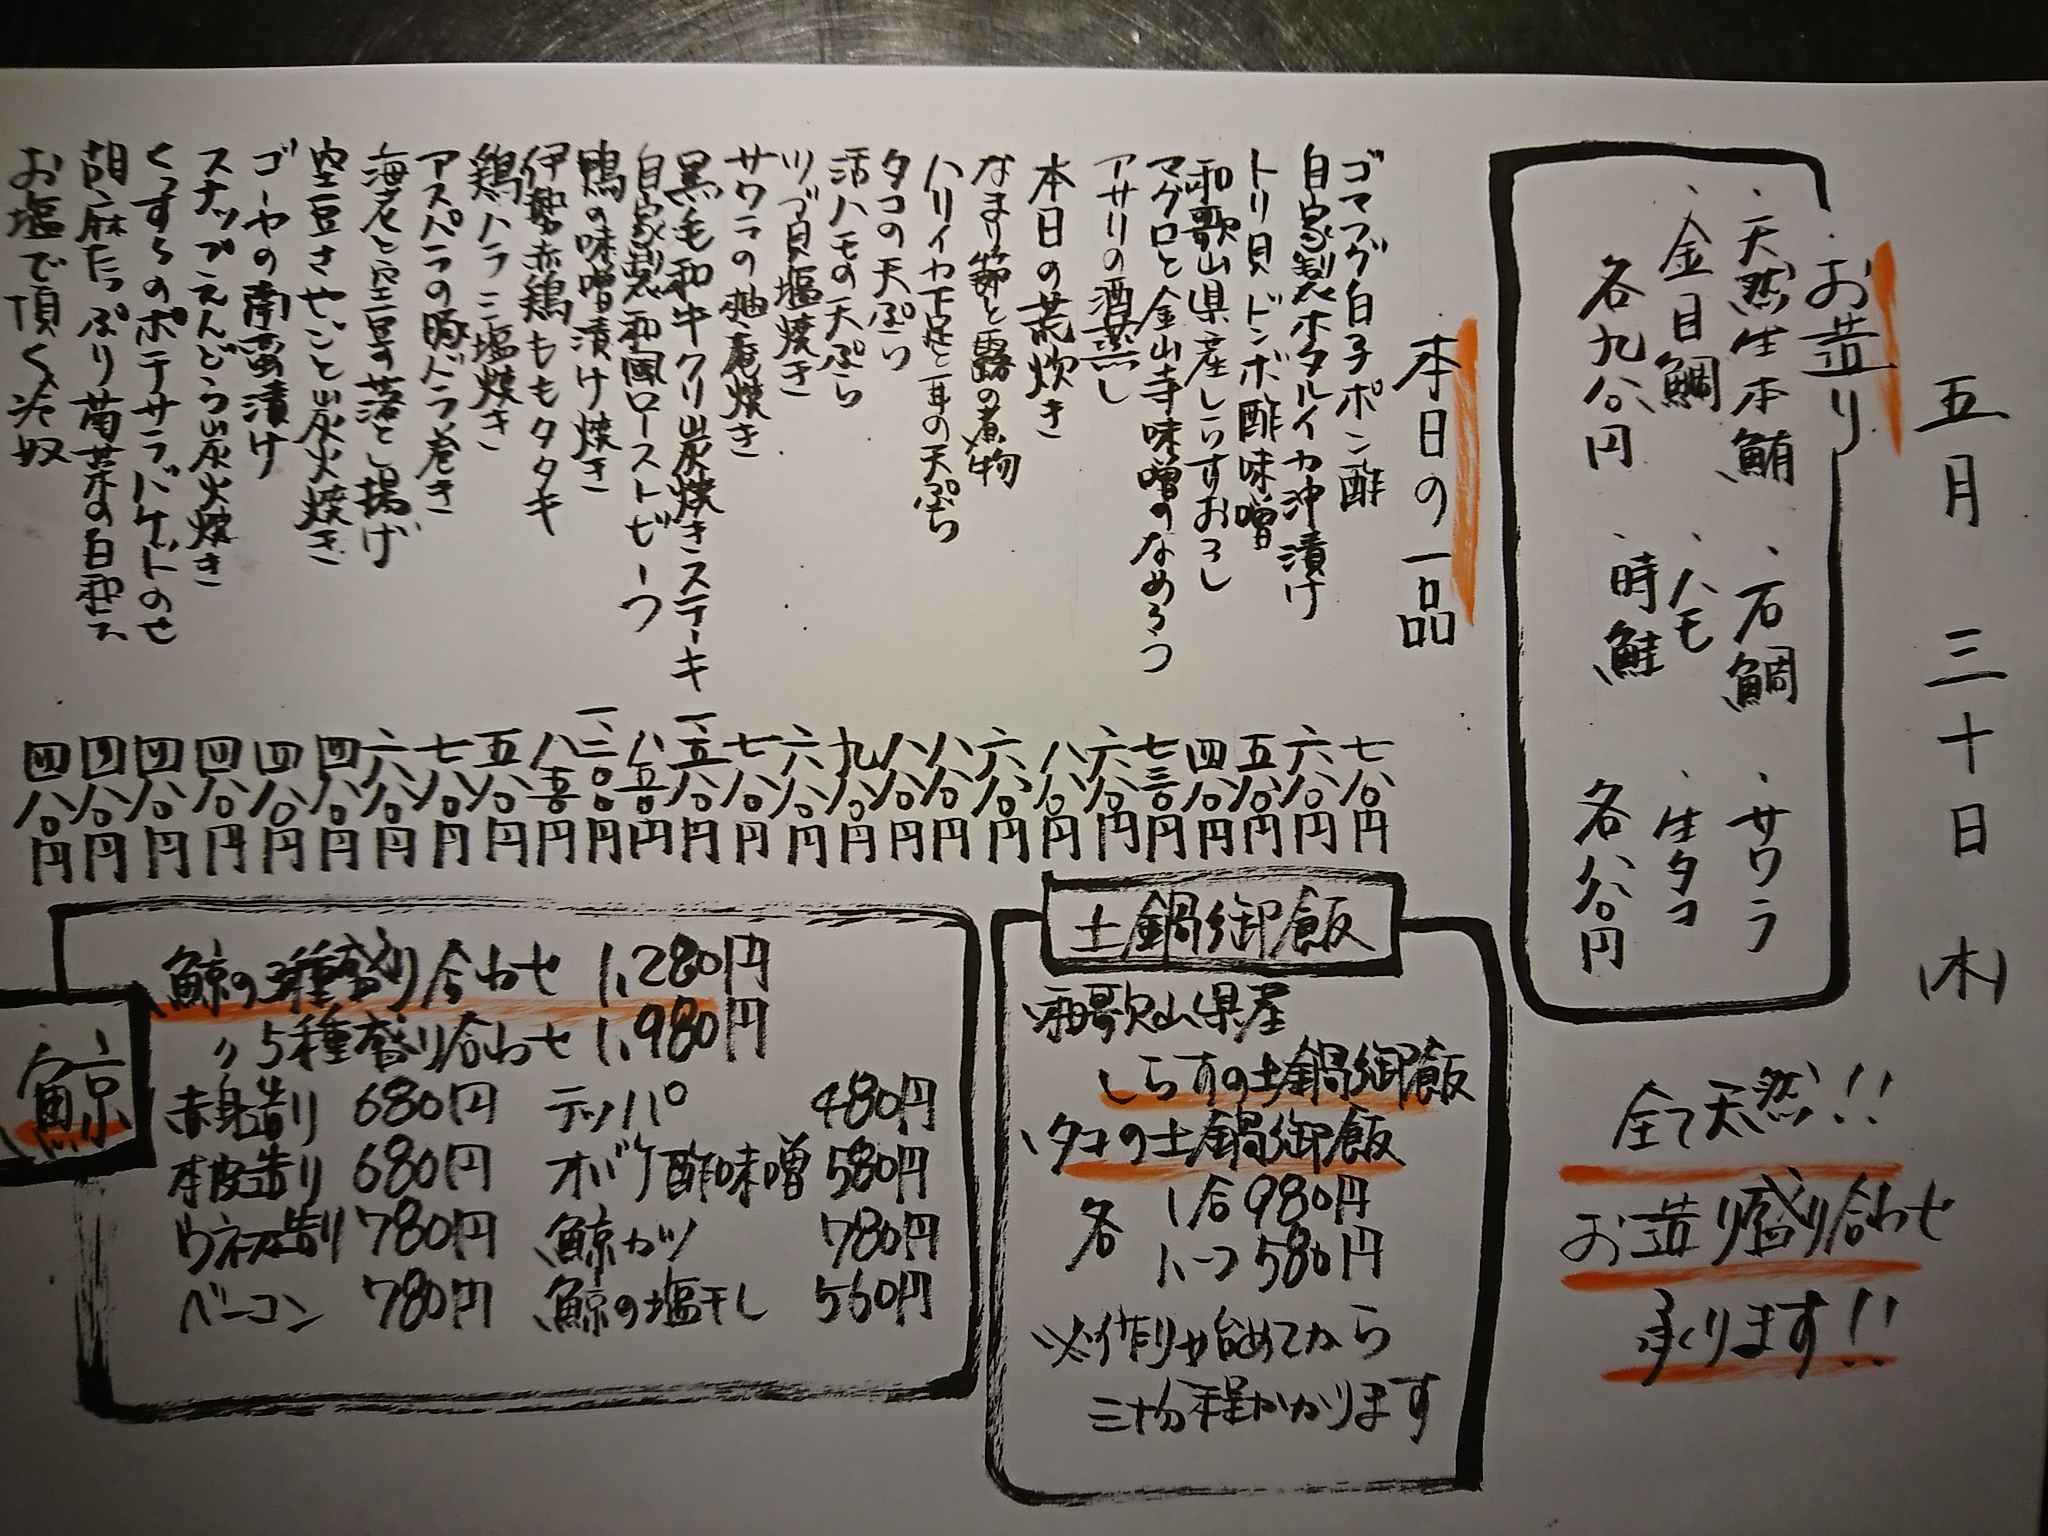 五月三十日(木)
お造り
・天然生本鮪 ・石鯛 ・サワラ
・金目鯛 ・ハモ ・生タコ
各九八〇円 時鮭 各八八〇円
全て天然!!
お造り盛り合わせ
承ります!!
本日の一品
ゴマフグ白子ポン酢 七八〇円
自家製ホタルイカ沖漬け 六八〇円
トリ貝ドンボ酢味噌 五八〇円
和歌山県産しらすおろし 四八〇円
マグロと金山寺味噌のなめろう 七三〇円
アサリの酒蒸し 六八〇円
本日の荒炊き 八八〇円
なまり節と蕗の煮物 六八〇円
ハリイカ下足と耳の天ぷら 八八〇円
タコの天ぷら 八八〇円
活ハモの天ぷら 九八〇円
ツブ貝塩焼き 六八〇円
サワラの柚庵焼き 七八〇円
黒毛和牛クリ炭焼きステーキ 一、五八〇円
自家製和風ローストビーフ 八五〇円
鴨の味噌漬け焼き 一、二〇〇円
伊勢赤鶏ももタタキ 八五〇円
鶏ハラミ塩焼き 五八〇円
アスパラの豚バラ巻き 七八〇円
海老と空豆の落とし揚げ 六八〇円
空豆さやごと炭火焼き 四八〇円
ゴーヤの南蛮漬け 四八〇円
スナップえんどう炭火焼き 四八〇円
くずらのポテサラバケットのせ 四八〇円
胡麻たっぷり菊菜の白和え 四八〇円
お塩で頂く冷奴 四八〇円
土鍋御飯
・和歌山県産
しらすの土鍋御飯
・タコの土鍋御飯
各 1合980円
ハーフ580円
※作り始めてから
三十分程かかります
鯨
鯨の3種盛り合わせ 1,280円
〃5種盛り合わせ 1,980円
赤身造り 680円 テッパ 480円
本皮造り 680円 オバケ酢味噌 580円
ウネス造り 780円 鯨カツ 780円
ベーコン 780円 鯨の塩干し 560円